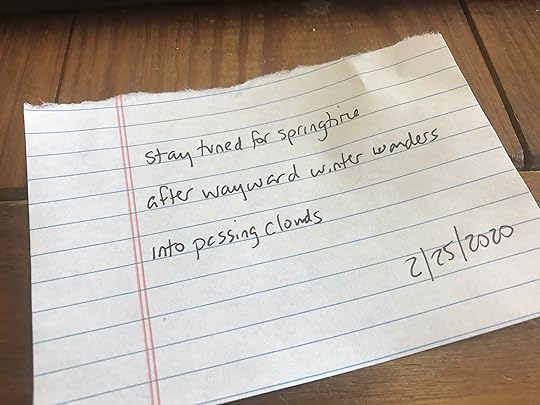 stay tuned for springtime
after wayward winter wanders
into passing clouds
2/25/2020